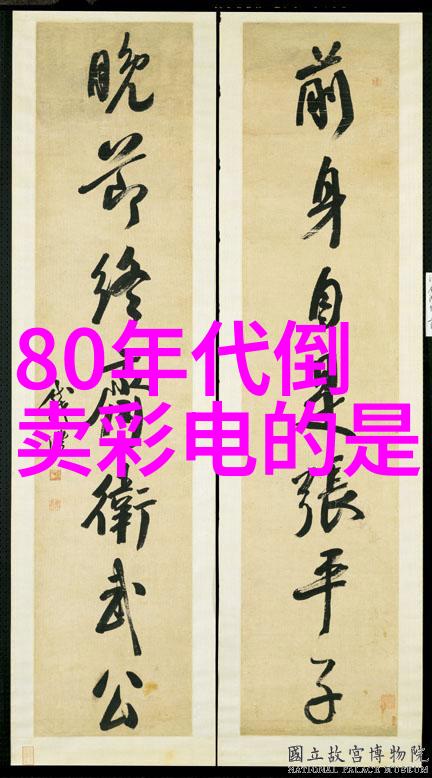 前身自是張平子
晚節終衛武公
80年代倒
卖彩电的是
國立故宮博物院
NATIONAL PALACE MUSEUM